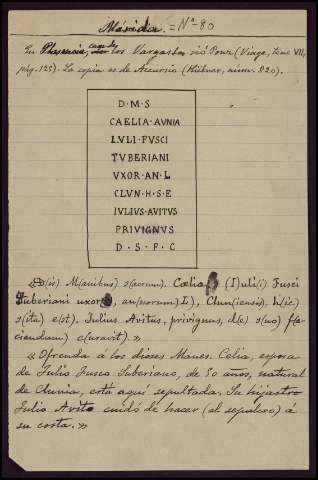 Mérida. = Nº 80
En Plasencia, casa de los Vargas, lo vió Ponz (Viage, tomo VII,
pág. 125). La copia es de Accursio (Hübner, núm. 820).
D · M · S
CAELIA · AVNIA
LVLI · FVSCI
TVBERIANI
VXOR · AN · L
CLVN · H · S · E
IVLIVS · AVITVS
PRIVIGNVS
D · S · F · C
«D(is) M(anibus) s(acrum). Caelia (I)uli(i) Fusci
Tuberiani uxor, an(norum) L), Clun(iensis), h(ic)
s(ita) e(st). Iulius Avitus, privignus, d(e) s(uo) f(a
ciendum) c(uravit). »
« Ofrenda á los dioses Manes. Celia, esposa
de Julio Fusco Tuberiano, de 50 años, natural
de Clunia, esta aquí sepultada. Su hijastro
Julio Avito cuidó de hacer (el sepulcro) á
su costa. »